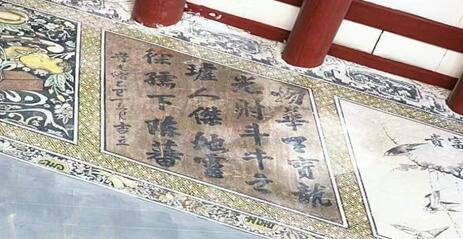 物華天寶龍
光射斗牛之
墟人傑地靈
徐孺下陳蕃